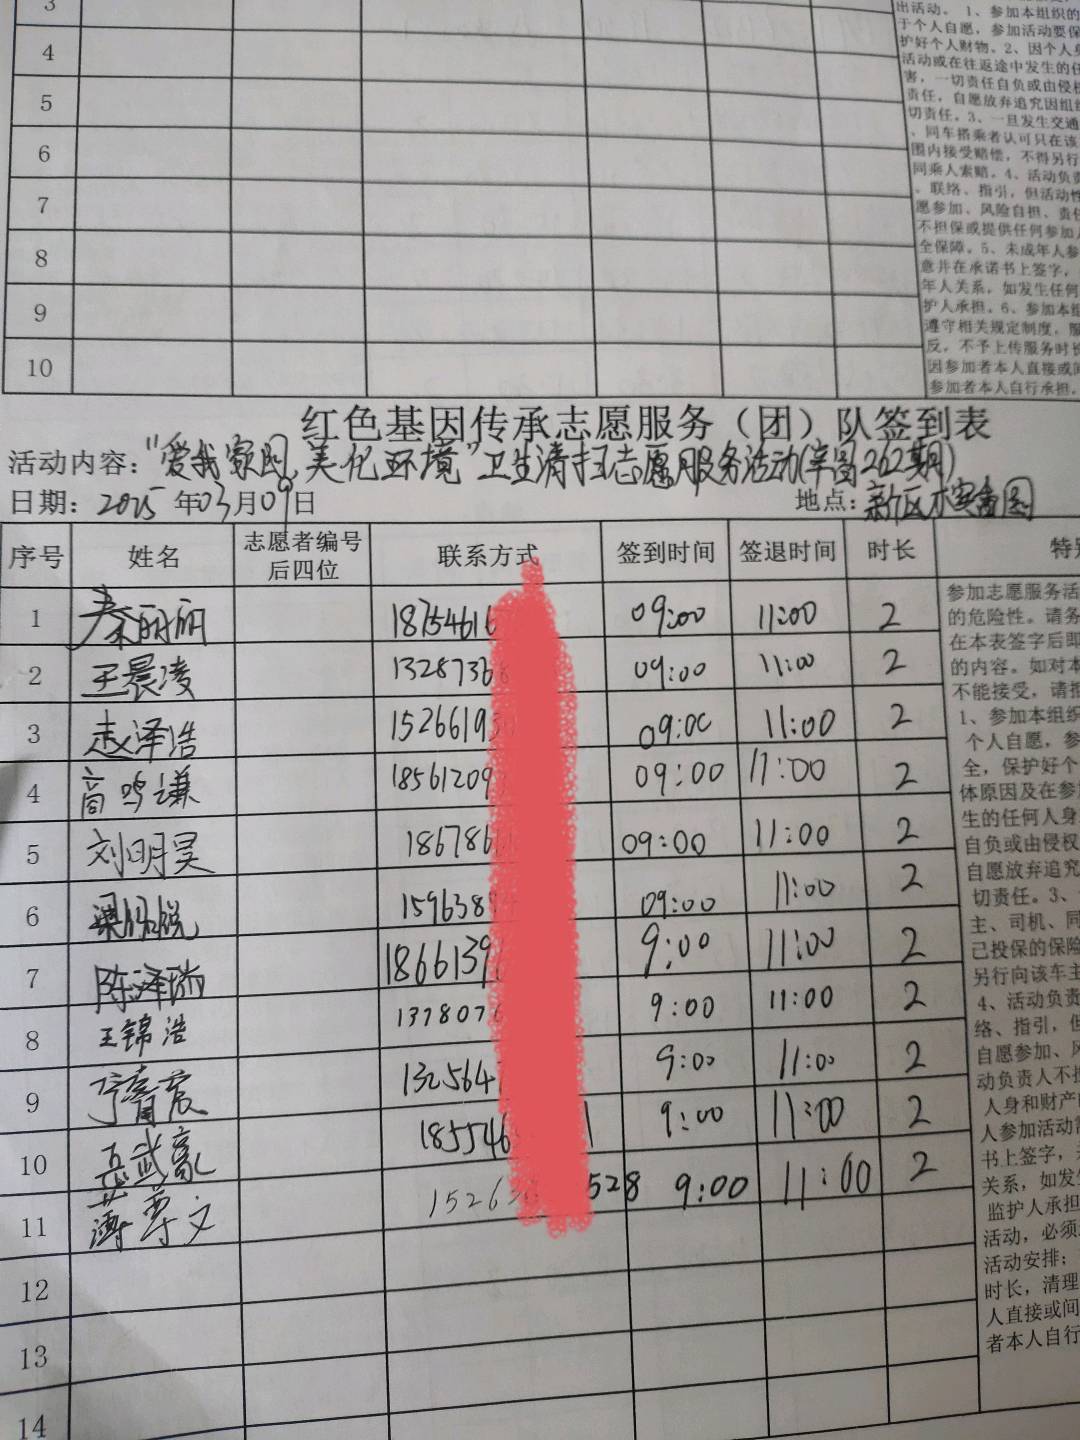 3
4
5
6
7
8
9
10
出活动。 1、参加本组织的
于个人自愿，参加活动要保
护好个人财物。2、因个人身
活动或在往返途中发生的任
害，一切责任自负或由侵权
责任，自愿放弃追究因组织
切责任。3、一旦发生交通
、同车搭乘者认可只在该
围内接受赔偿，不得另行
同乘人索赔。4、活动负责
、联络、指引，但活动性
愿参加、风险自担、责任
不担保或提供任何参加人
全保障。5、未成年人参
意并在承诺书上签字，
年人关系，如发生任何
护人承担。6、参加本组
遵守相关规定制度，服
反，不予上传服务时长
因参加者本人直接或间
参加者本人自行承担。
红色基因传承志愿服务（团）队签到表
活动内容：“爱我家园，美化环境”卫生清扫志愿服务活动(宰富262期)
日期：2025年03月09日 地点：新区
序号 姓名 志愿者编号后四位 联系方式 签到时间 签退时间 时长 特别
1 秦丽丽 1875461 09:00 11:00 2
2 王晨凌 1328736 09:00 11:00 2
3 赵泽浩 15266193 09:00 11:00 2
4 高鸣谦 18561209 09:00 11:00 2
5 刘明昊 186786 09:00 11:00 2
6 梁 悦 159638 09:00 11:00 2
7 陈泽瑞 1866139 9:00 11:00 2
8 王锦浩 137807 9:00 11:00 2
9 宁 132564 9:00 11:00 2
10 孟武豪 18554 1 9:00 11:00 2
11 薄 文 1526 528 9:00 11:00 2
12
13
14
参加志愿服务活
的危险性。请务
在本表签字后即
的内容。如对本
不能接受，请拒
1、参加本组织
个人自愿，参
全，保护好个
体原因及在参加
生的任何人身
自负或由侵权
自愿放弃追究
切责任。3、
主、司机、同
已投保的保险
另行向该车主
4、活动负责
络、指引，但
自愿参加、风
动负责人不担
人身和财产
人参加活动需
书上签字，
关系，如发生
监护人承担
活动，必须
活动安排；
时长，清理
人直接或间
者本人自行